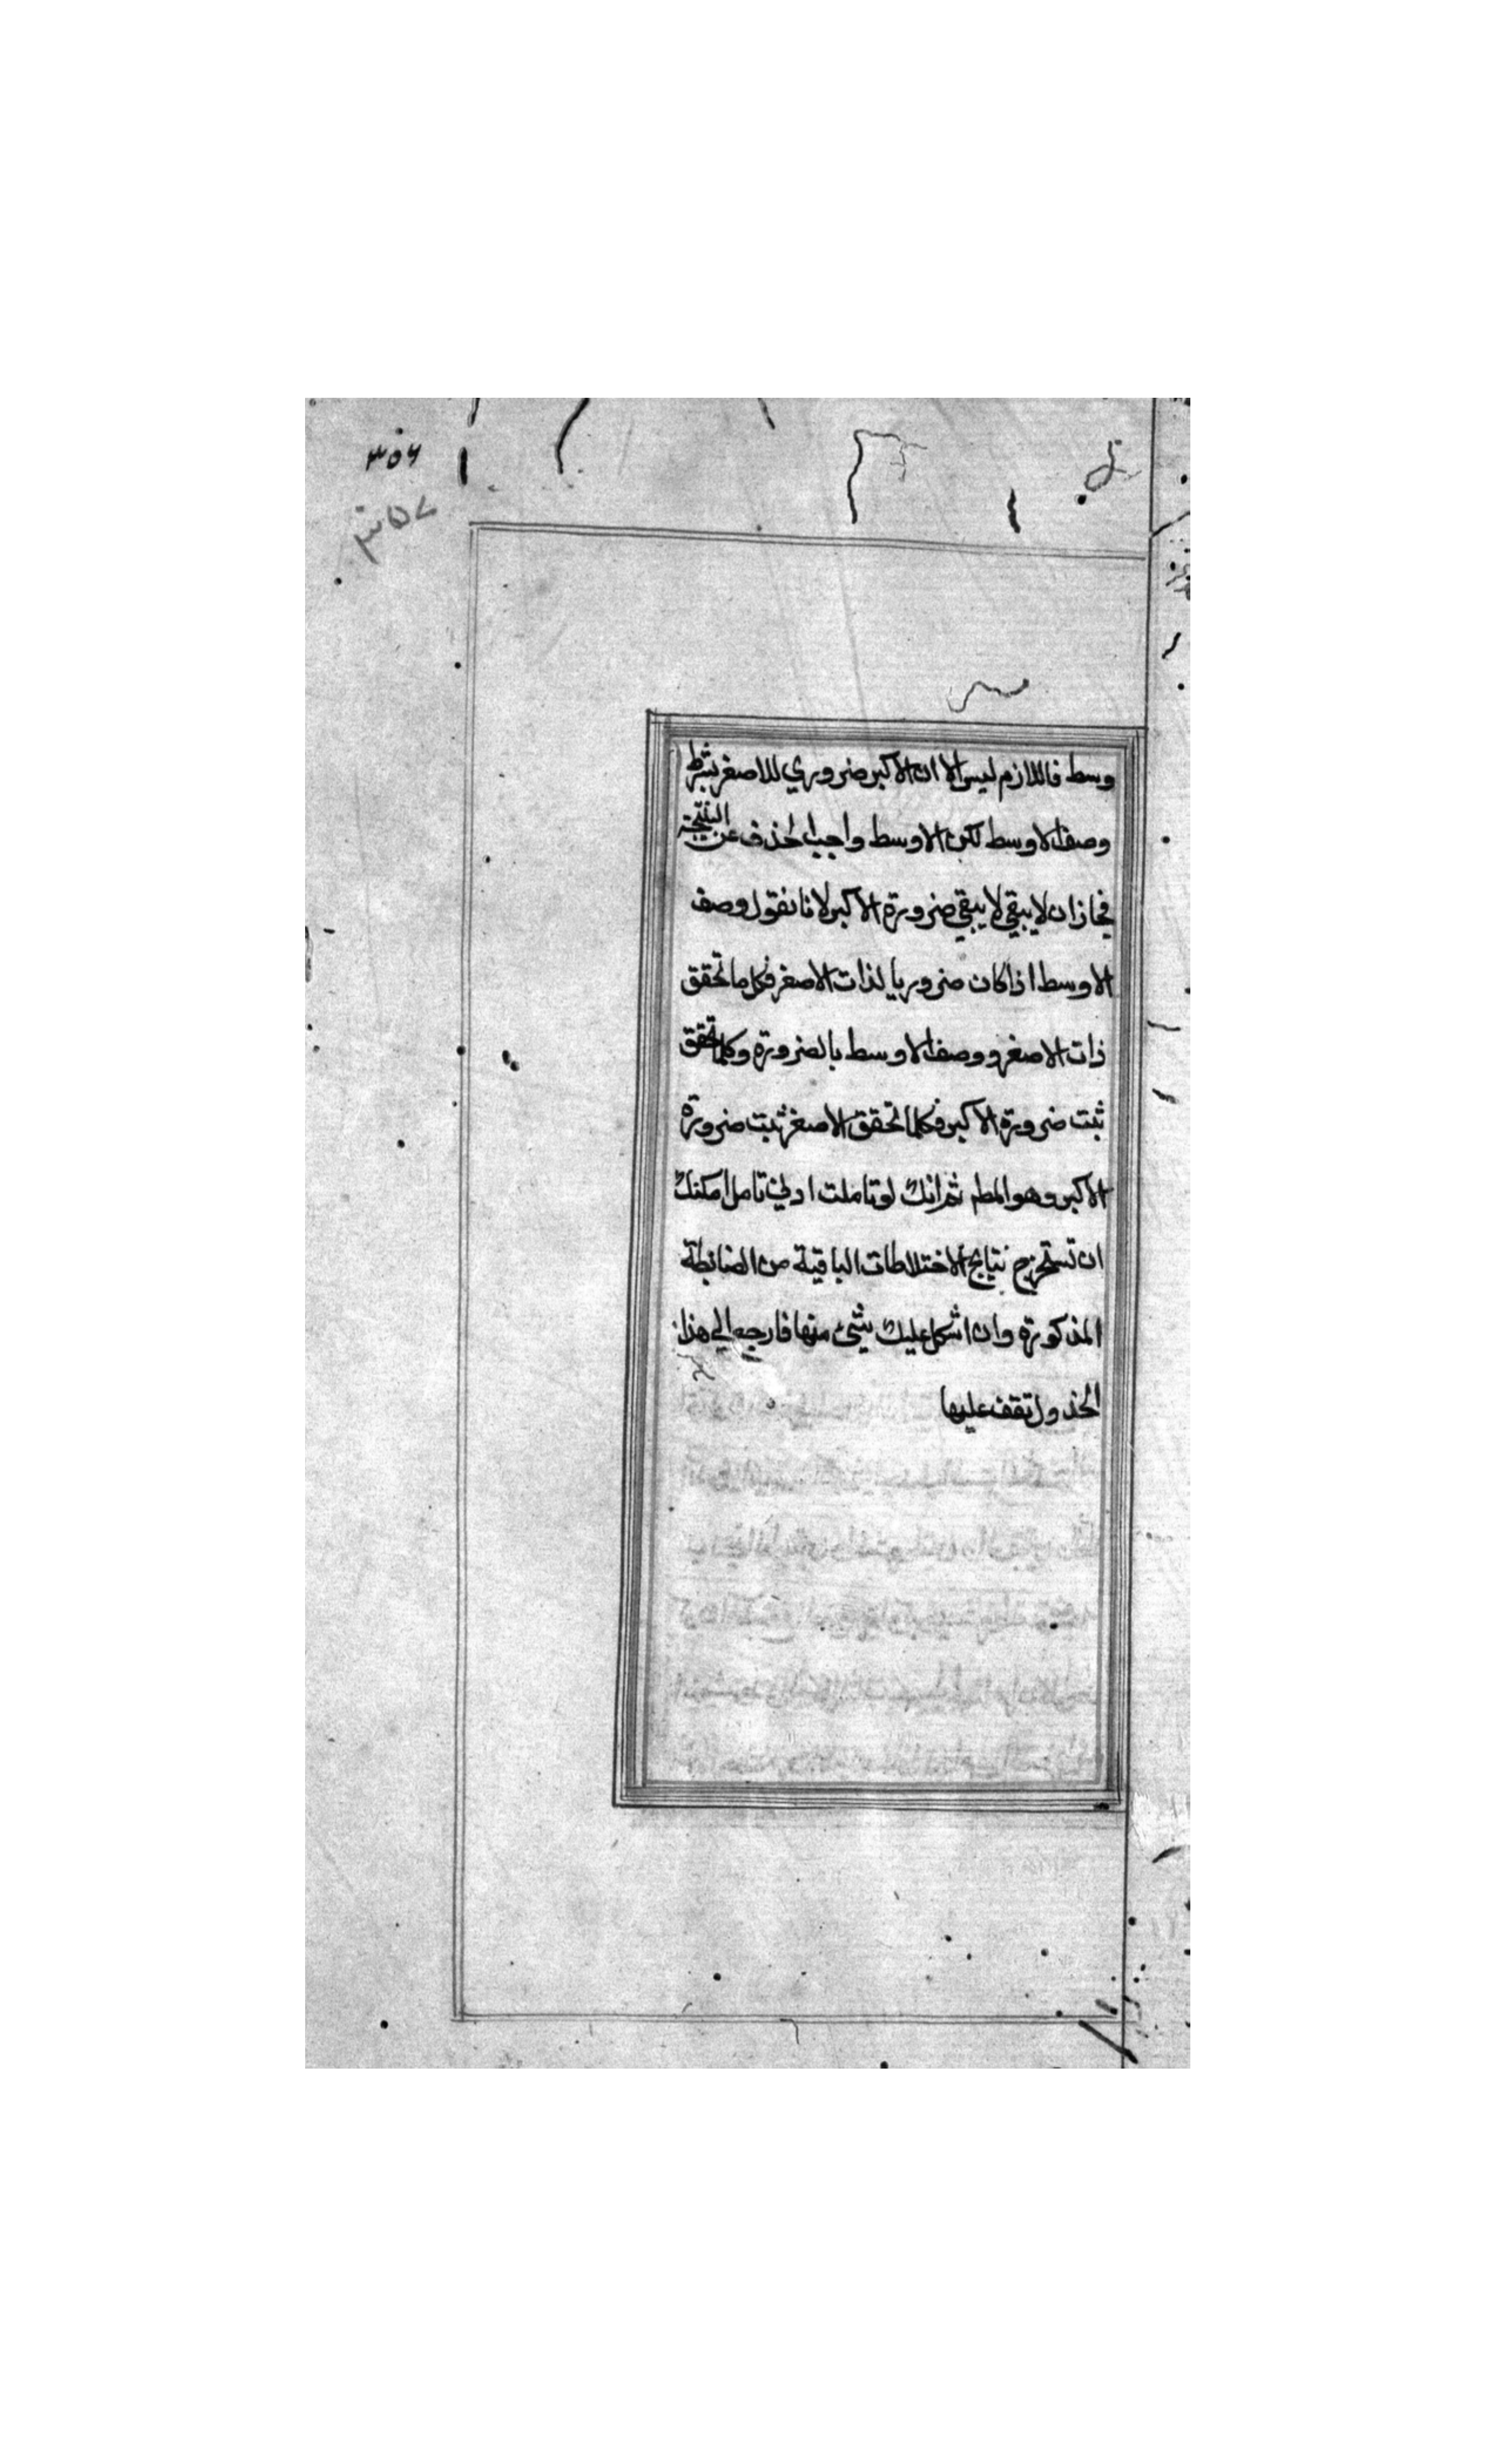 ٣٥٦
٣٥٧
وسط فاللازم ليس الا ان الاكبر ضروري للاصغر بشرط
وصف الاوسط لكن الاوسط واجب الحذف عن النتيجة
فجاز ان لا يبقي لا يبقي ضرورة الاكبر لانا نقول وصف
الاوسط اذا كان ضروريا لذات الاصغر فكل ما تحقق
ذات الاصغر ووصف الاوسط بالضرورة وكلما تحقق
ثبت ضرورة الاكبر فكلما تحقق الاصغر ثبت ضرورة
الاكبر وهو المطم ثم انك لو تاملت ادني تامل امكنك
ان تستخرج نتايج الاختلاطات الباقية من الضابطة
المذكورة وان اشكل عليك شيء منها فارجع الي هذا
الجذول تقف عليها